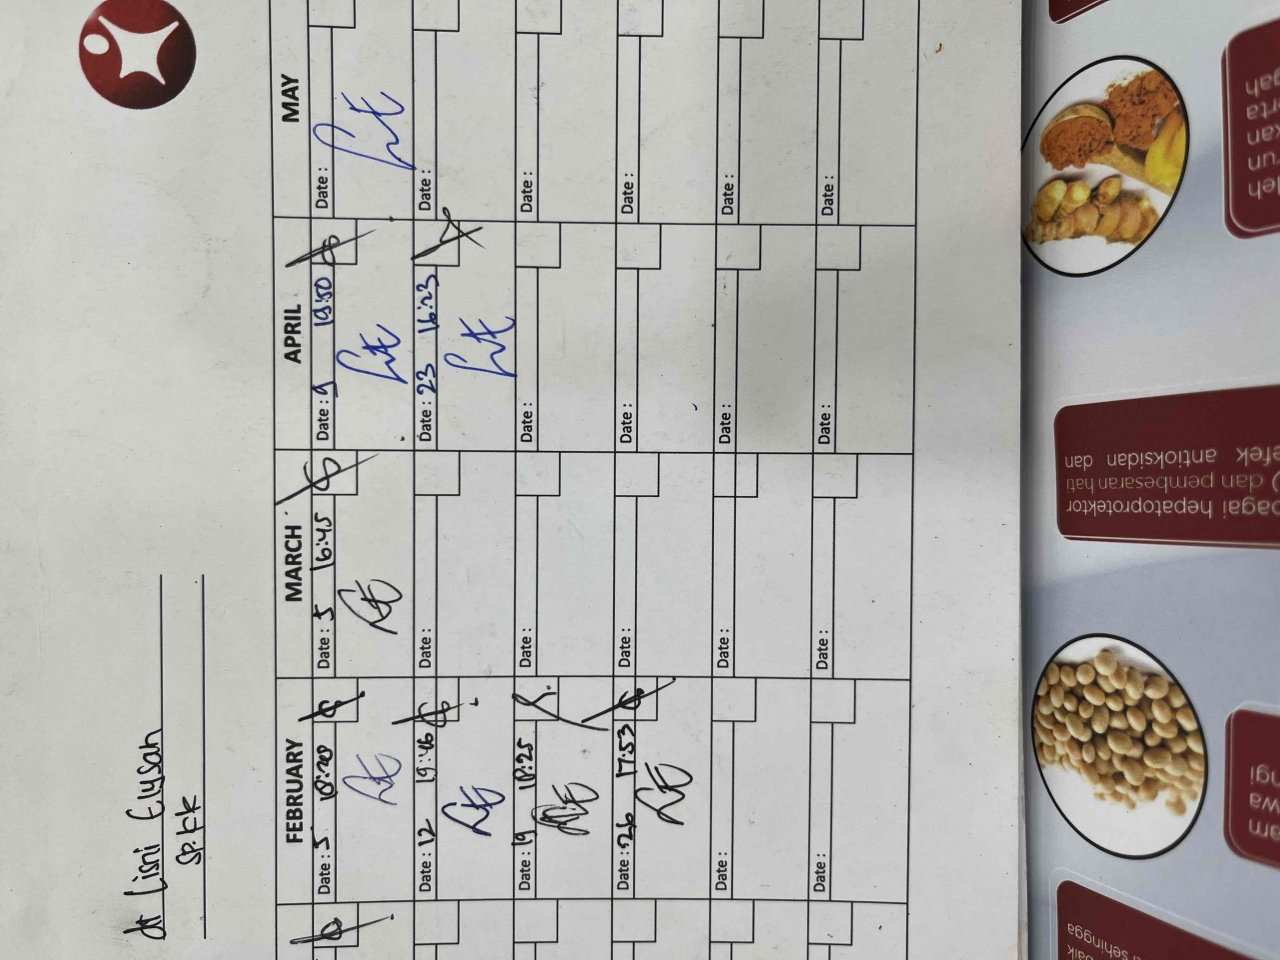 dr Lisni Elysah
Sp.kk
FEBRUARY MARCH APRIL MAY
Date : 5 18:20 Date : 5 16:45 Date : 9 19:50 Date :
Date : 12 19:46 Date : Date : 23 16:23 Date :
Date : 19 18:25 Date : Date : Date :
Date : 26 17:53 Date : Date : Date :
Date : Date : Date : Date :
Date : Date : Date : Date :
bagai hepatoprotektor
dan pembesaran hati
efek antioksidan dan
sehingga
baik